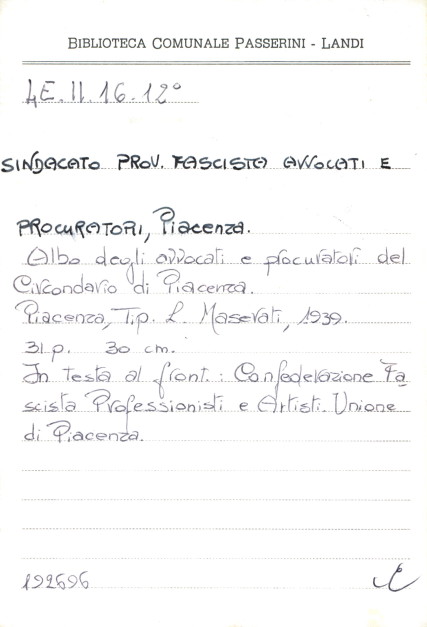 BIBLIOTECA COMUNALE PASSERINI - LANDI
4E.II.16.12°
SINDACATO PROV. FASCISTA AVVOCATI E
PROCURATORI, Piacenza.
Albo degli avvocati e procuratori del
Circondario di Piacenza.
Piacenza, Tip. L. Maserati, 1939.
31 p. 30 cm.
In testa al front.: Confederazione Fa
scista Professionisti e Artisti. Unione
di Piacenza.
192696